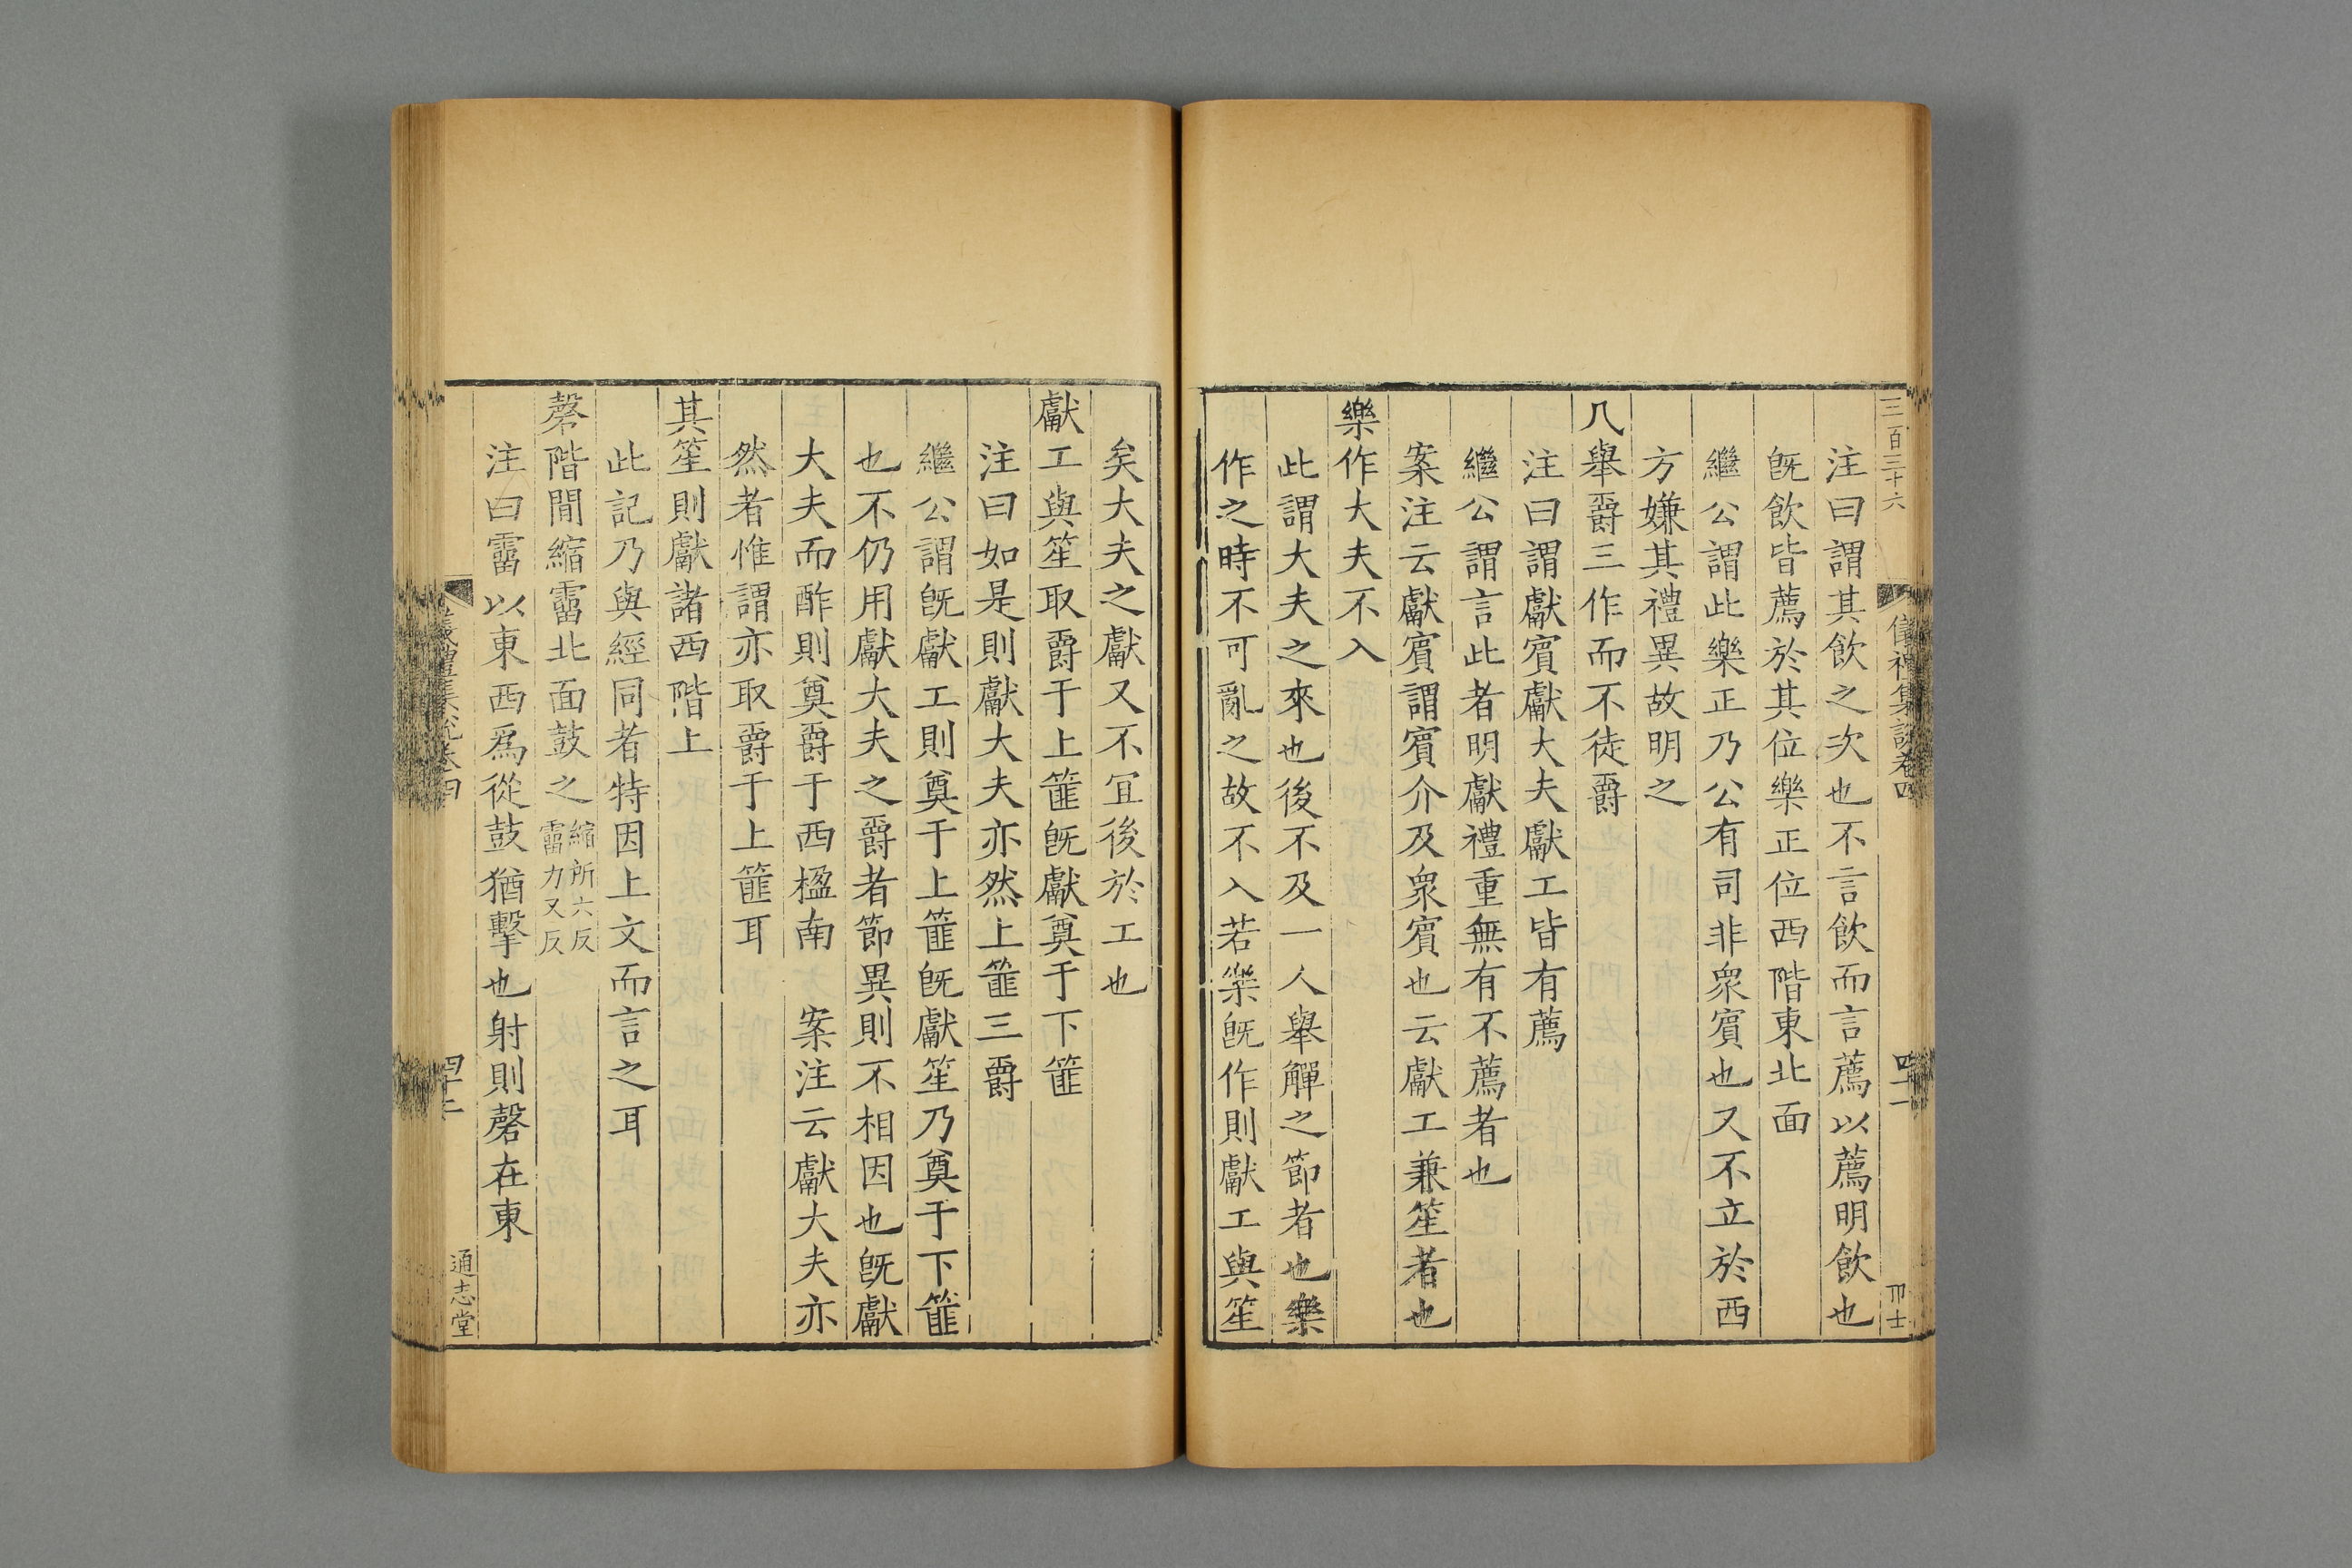 三百三十六
儀禮集說卷四
四十一
注曰謂其飲之次也不言飲而言薦以薦明飲也
旣飲皆薦於其位樂正位西階東北面
繼公謂此樂正乃公有司非衆賓也又不立於西
方嫌其禮異故明之
凡舉爵三作而不徒爵
注曰謂獻賓獻大夫獻工皆有薦
繼公謂言此者明獻禮重無有不薦者也
案注云獻賓謂賓介及衆賓也云獻工兼笙者也
樂作大夫不入
此謂大夫之來也後不及一人舉觶之節者也樂
作之時不可亂之故不入若樂旣作則獻工與笙
矣大夫之獻又不冝後於工也
獻工與笙取爵于上篚旣獻奠于下篚
注曰如是則獻大夫亦然上篚三爵
繼公謂旣獻工則奠于上篚旣獻笙乃奠于下篚
也不仍用獻大夫之爵者節異則不相因也旣獻
大夫而酢則奠爵于西楹南 案注云獻大夫亦
然者惟謂亦取爵于上篚耳
其笙則獻諸西階上
此記乃與經同者特因上文而言之耳
磬階閒縮霤北面鼓之縮所六反霤力又反
注曰霤以東西爲從鼓猶擊也射則磬在東
儀禮集說卷四
四十二
通志堂